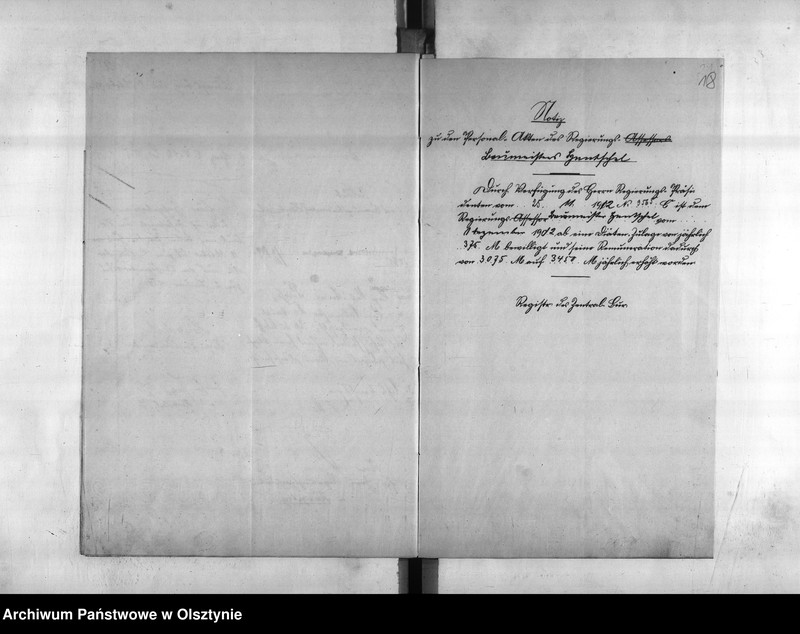 118
Notiz
zu den Personal-Akten des Regierungs-Assessors
Baumeisters Hentschel
Durch Verfügung des Herrn Regierungs-Präsi-
denten vom 25. 11. 1912 ist dem
Regierungs-Assessor Baumeister Hentschel vom
1 Dezember 1912 ab eine Diäten-Zulage von jährlich
375 M bewilligt und seine Remuneration dadurch
von 3075 M auf 3450 M jährlich erhöht worden.
Registr. des Zentral-Bür.
Archiwum Państwowe w Olsztynie